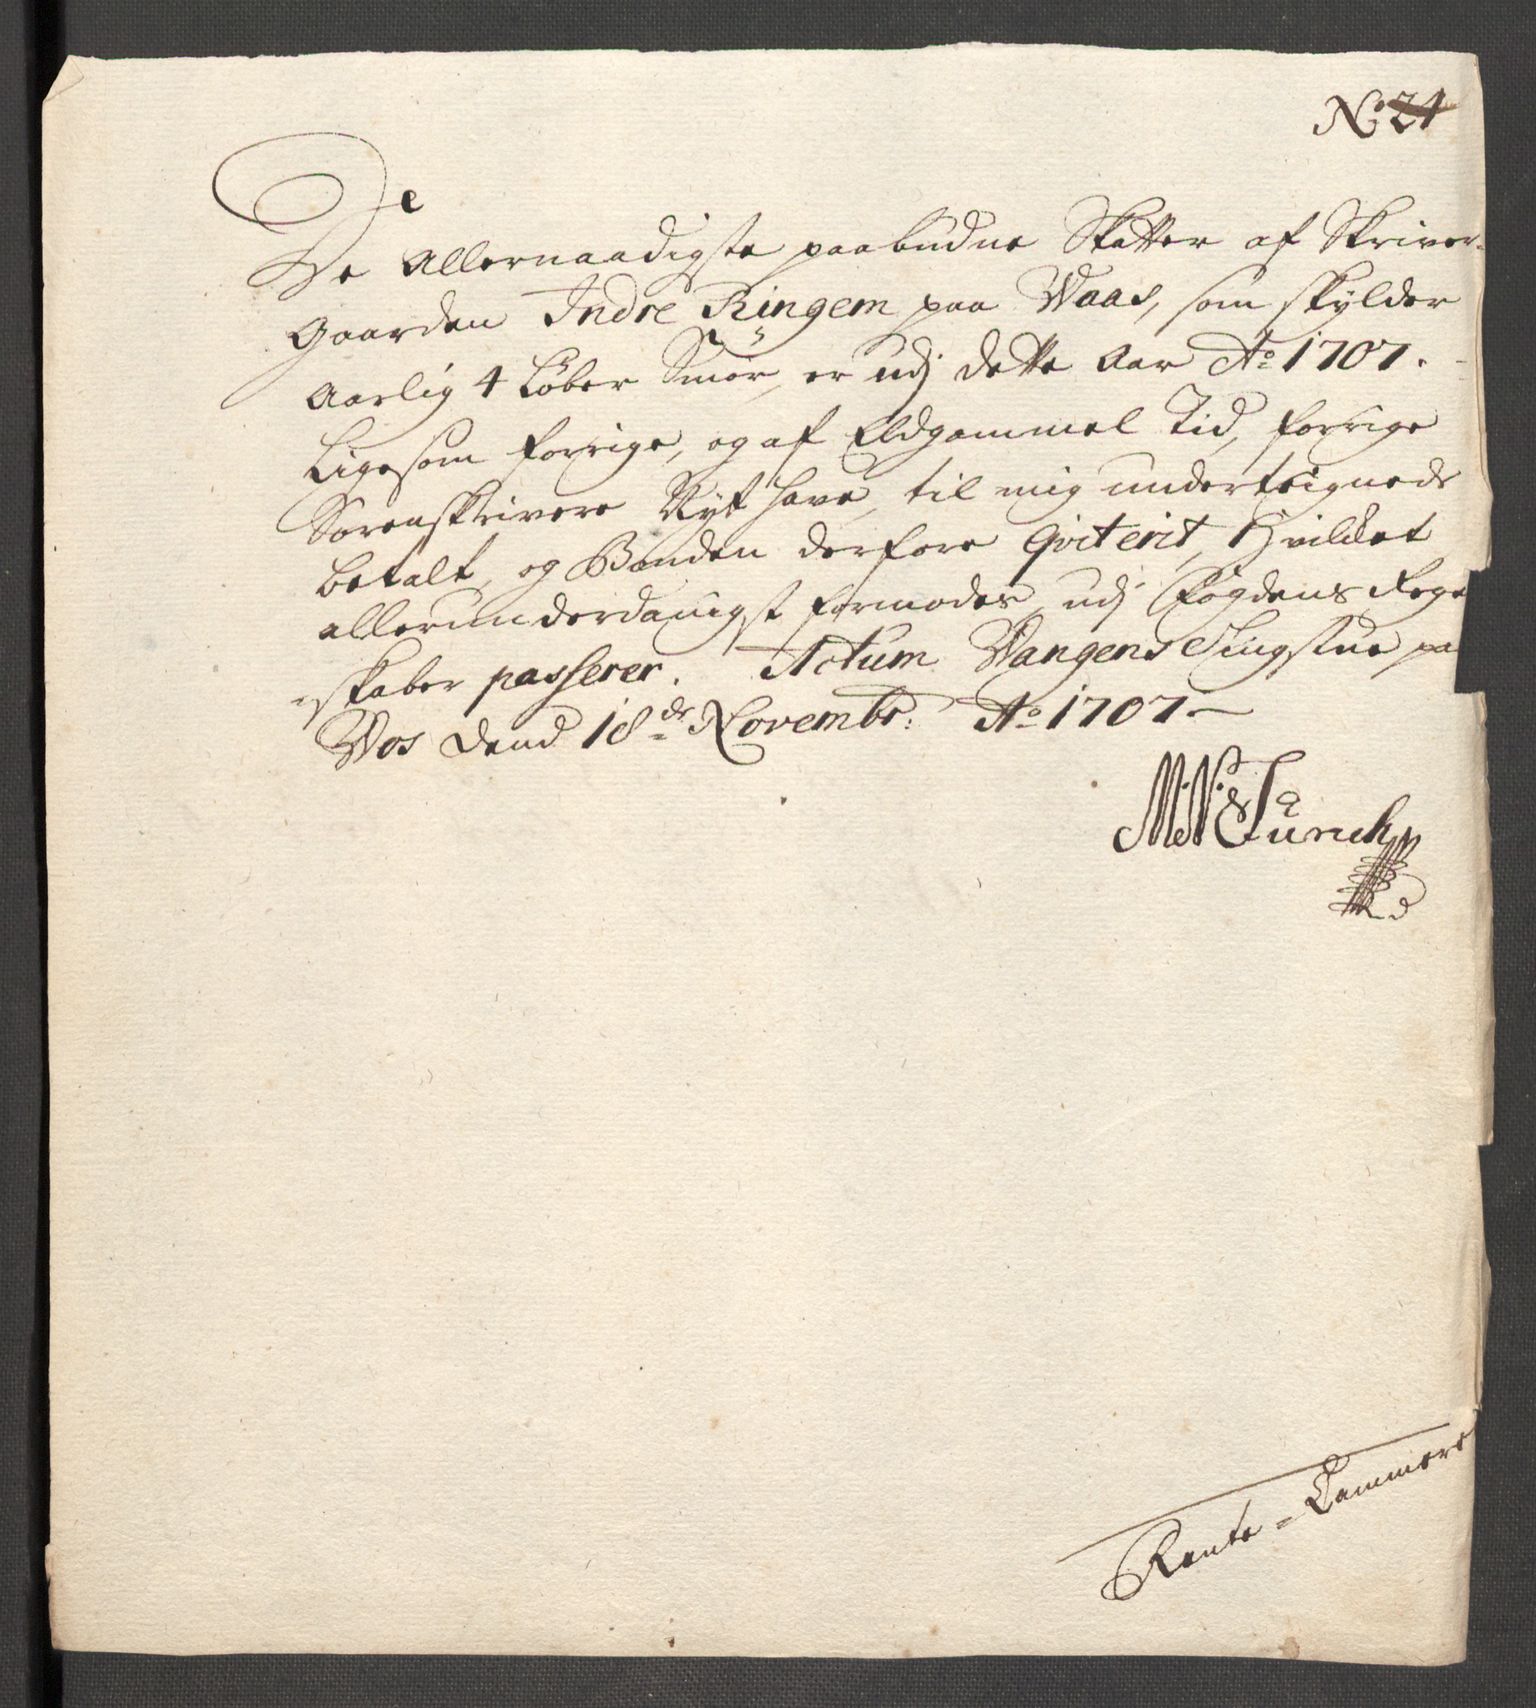 No 21
De
De Allernaadigste paabudne Skatter af Skriver-
Gaarden Indre Ringem paa Waas, som skylder
Aarlig 4 Løber Smør, er udj dette Aar Ao 1707.
Ligesom forrige, og af Eldgammel Tid, forrige
Sorenskrivere Nÿt have, til mig underteignede
betalt, og Bonden derfore qviterit, Hvilcket
allerunderdanigst formodes udj Fogdens Regn
-skaber passerer. Actum Wangens Tingstue pa
Wos dend 18de Novembr: Ao 1707
Rente-Cammere